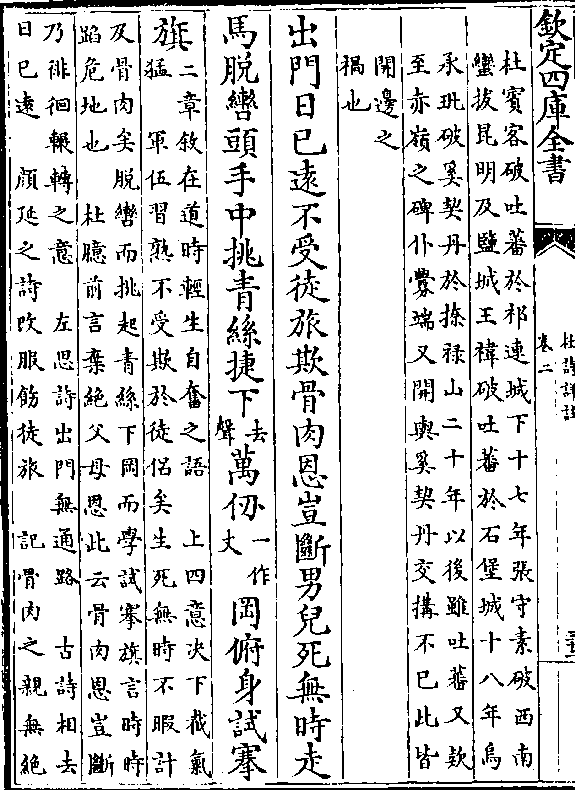 欽定四庫全書
杜詩詳註
卷二
杜賓客破吐蕃於祁連城下十七年張守素破西南
蠻拔昆明及鹽城王禕破吐蕃於石堡城十八年烏
承玼破奚契丹於捺禄山二十年以後雖吐蕃又欵
至赤嶺之碑仆釁端又開與奚契丹交搆不已此皆
開邊之
禍也
出門日已遠不受徒旅欺骨肉恩豈斷男兒死無時走
馬脱轡頭手中挑青絲捷下去聲萬仞一作丈岡俯身試搴
旗二章敘在道時輕生自奮之語 上四意决下截氣
猛 軍伍習熟不受欺於徒侣矣生死無時不暇計
及骨肉矣脱轡而挑起青絲下岡而學試搴旗言時時
蹈危地也 杜臆前言棄絶父母恩此云骨肉恩豈斷
乃徘徊輾轉之意 左思詩出門無通路 古詩相去
日已遠 顔延之詩改服飭徒旅 記骨肉之親無絶